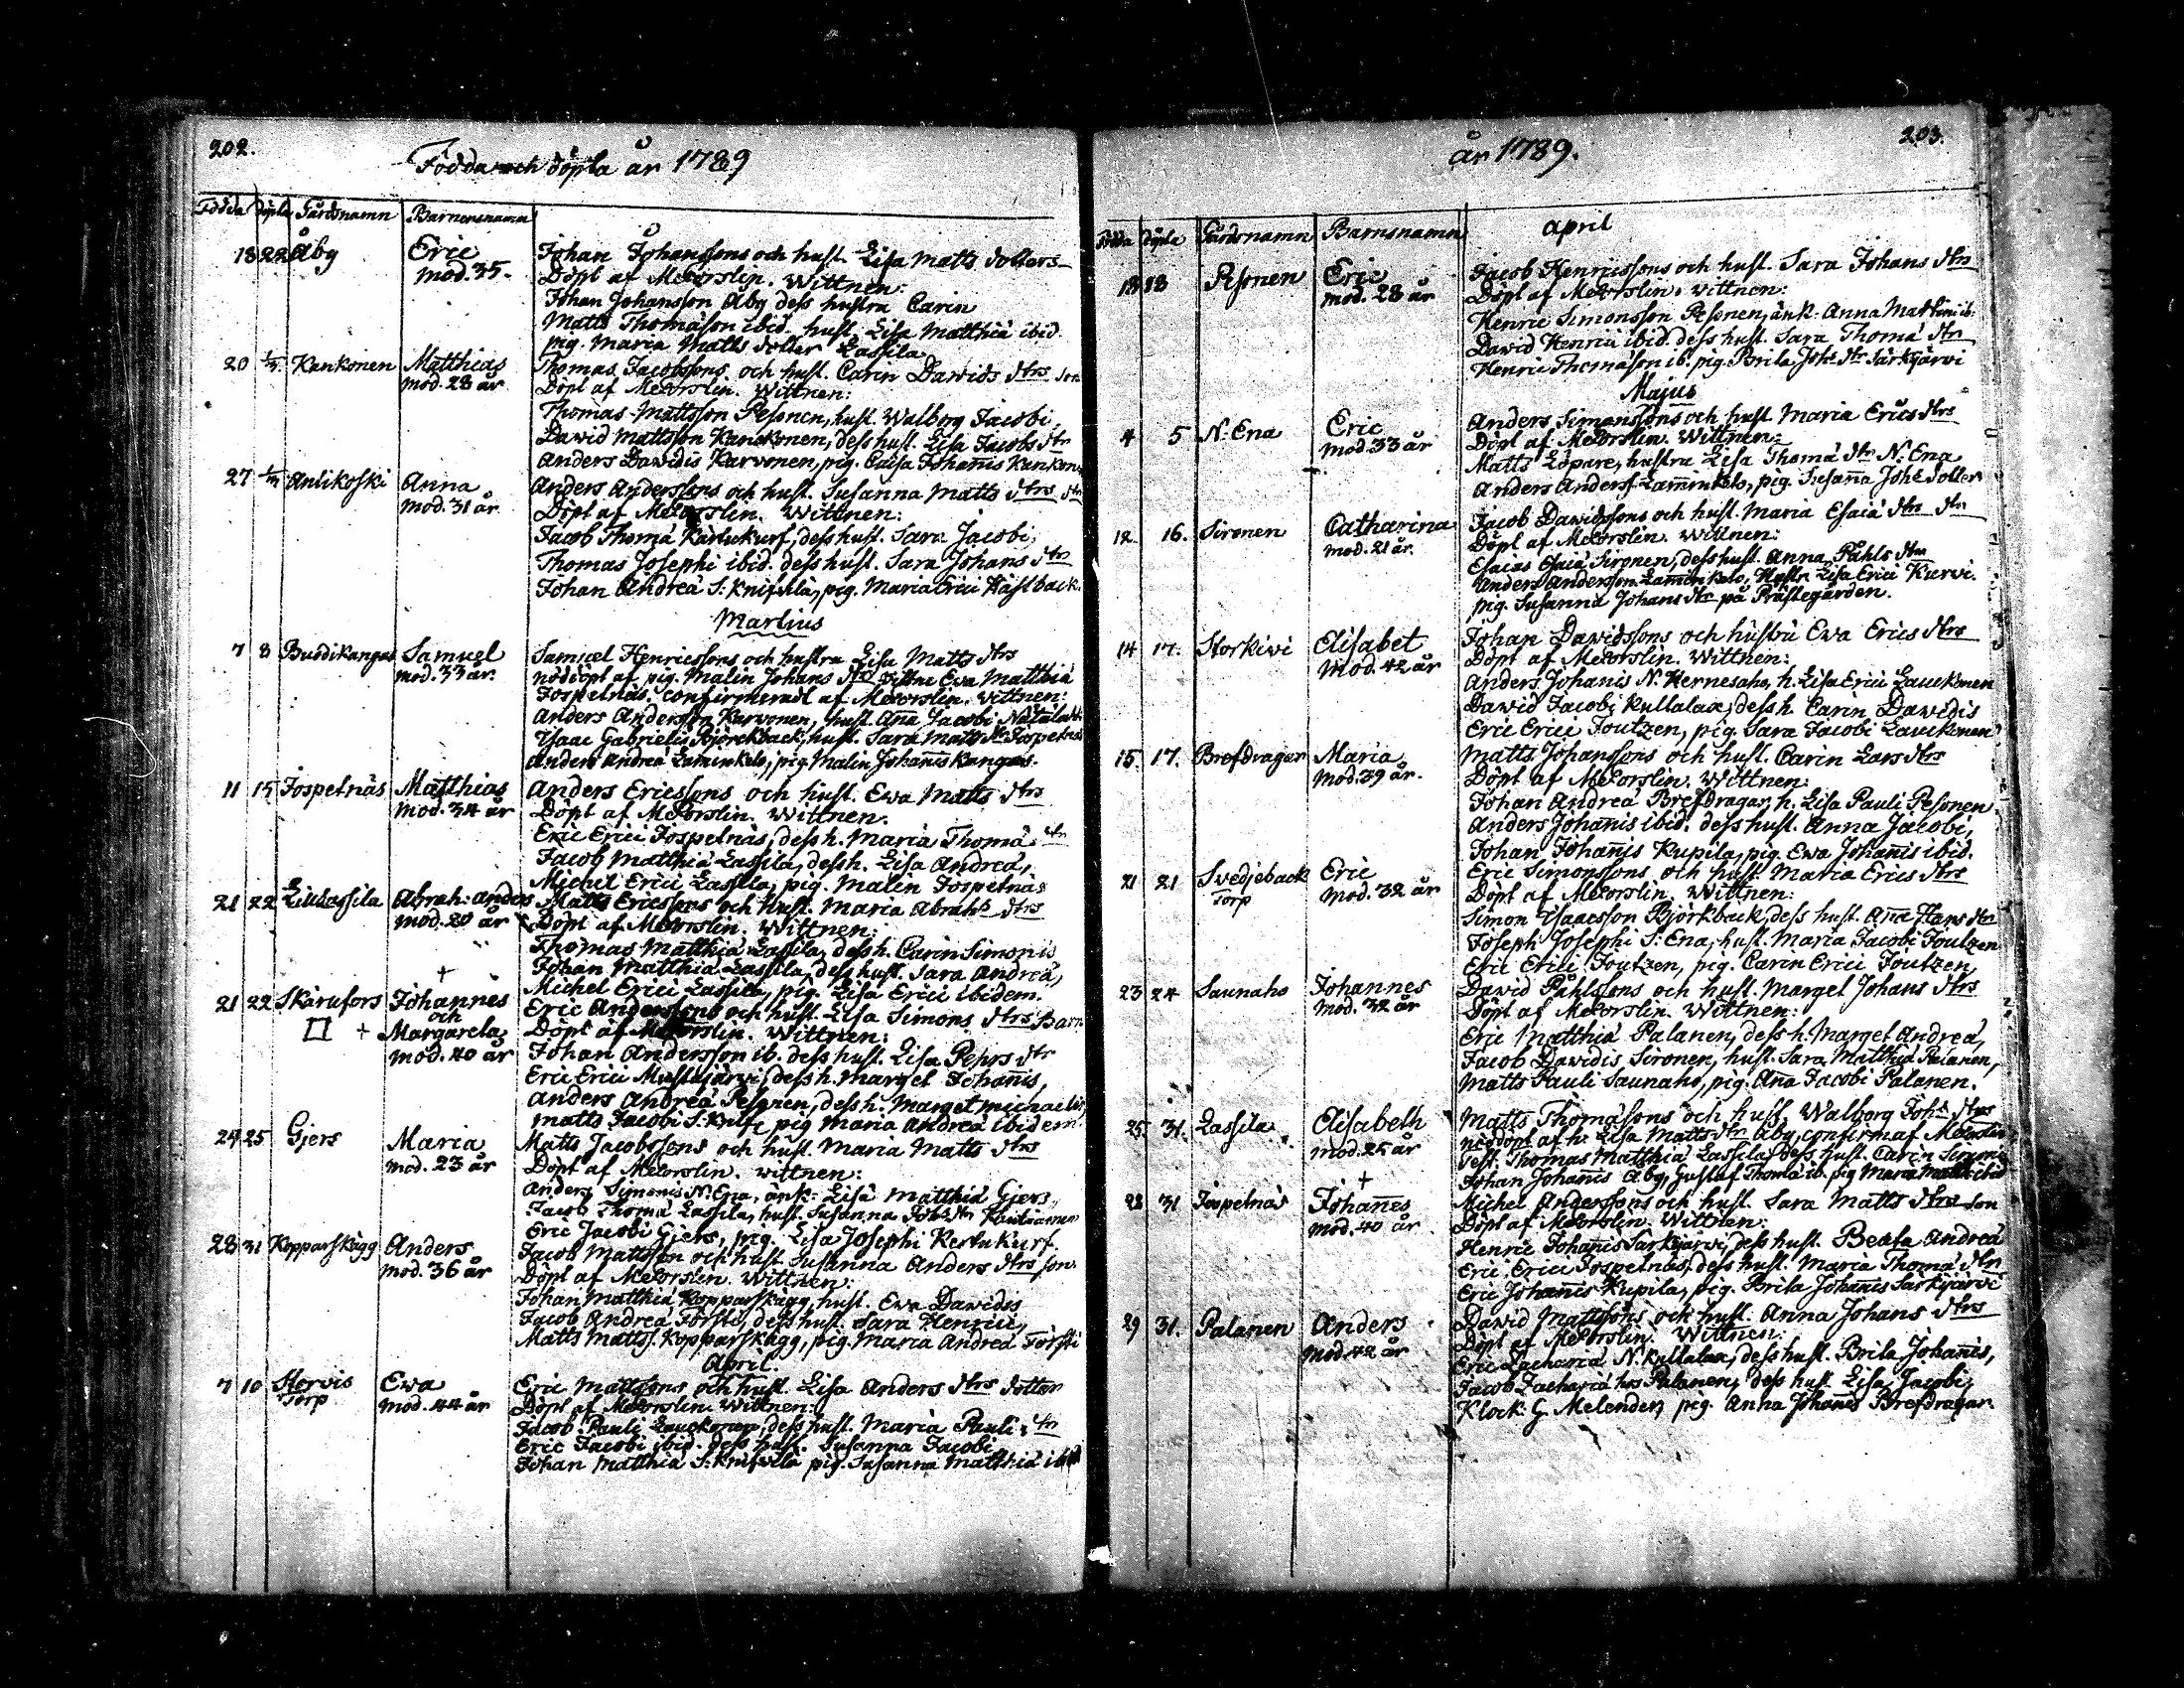 202.
Födda och döpta år 1789
Födda döpta Gårdsnamn Barnensnamn
18 22 Åby Eric Johan Johanssons och hust. Lisa Matts dotters
mod. 35. Döpt af Wittnen:
Johan Johansson Åby dess hustru Carin
Matts Thomæson ibid. hust. Lisa Matthiæ ibid.
pig. Maria Matts dotter Lassila
20 Kankonen Matthias Thomas Jacobssons och hust. Carin Dawids dtrs son
mod. 28 år Döpt af Wittnen:
Thomas Mattsson Pesonen, hust. Walborg Jacobi,
Dawid Mattsson Kankonen, dess hust. Lisa Jacobs dtr
Anders Dawidis Karvonen, pig. Caisa Johan̄is Kankon
27 Antikoski Anna Anders Anderssons och hust. Susanna Matts dtrs dtr
mod. 31 år Döpt af Wittnen:
Jacob Thomæ dess hust. Sara Jacobi,
Thomas Josephi ibid. dess hust. Sara Johans dtr
Johan Andreæ S: Knifsilä, pig. Maria Erici Hästback.
Martius
7 8 Buddikangas Samuel Samuel Henricssons och hustru Lisa Matts dtrs
mod. 33 år nöddöpt af pig. Malin Johans Ewa Matthiæ
Jospetnäs, confirmeradt af Wittnen:
Anders Andersson Karvonen, hust. An̄a Jacobi
Isaac Gabrielis Björckback, hust. Sara Matts dtr Jospetnäs
Anders Andreæ Lamminkelo, pig. Malin Johan̄is Kangas.
11 15 Jospetnäs Matthias Anders Ericssons och hust. Ewa Matts dtrs
mod. 34 år Döpt af Wittnen.
Eric Erici Jospetnäs, dess h. Maria Thomæ dtr
Jacob Matthiæ Lassila, dess h. Lisa Andreæ,
Michel Erici Lassila, pig. Malin Jospetnäs
21 22 Abrah: Anders Matts Ericssons och hust. Maria Abrahs dtrs
mod. 20 år Döpt af Wittnen:
Thomas Matthiæ Lassila, dess h. Carin Simonis
Johan Matthiæ Lassila, dess hust. Sara Andreæ,
Michel Erici Lassila, pig. Lisa Erici ibidem.
+
21 22 Skärufors Johannes Eric Anderssons och hust. Lisa Simons dtrs Barn
och
+ Margareta Döpt af Wittnen:
mod. 40 år Johan Andersson ib. dess hust. Lisa Pehrs dtr
Eric Erici Mustajärvi, dess h. Marget Johan̄is,
Anders Andreæ Pesonen, dess h. Marget Michaelis,
Matts Jacobi S: Knif, pig Maria Andreæ ibidem.
24 25 Gjers Maria Matts Jacobssons och hust. Maria Matts dtrs
mod. 23 år Döpt af Wittnen:
Anders Simonis N. Ena, änk: Lisa Matthiæ Gjers,
Jacob Thomæ Lassila, hust. Susanna
Eric Jacobi Gjers, pig. Lisa Josephi
28 31 Kopparskägg Anders Jacob Mattsson och hust Susanna Anders dtrs son
mod. 36 år Döpt af Wittnen:
Johan Matthiæ Kopparskägg, hust. Ewa Dawidis
Jacob Andreæ Försti, dess hust. Sara Henrici,
Matts Matts. Kopparskägg, pig. Maria Andreæ Försti
April.
7 10 Storvis Ewa Eric Mattssons och hust. Lisa Anders dtrs dotter
Torp mod. 44 år Döpt af Wittnen:
Jacob Pauli Lauckonen, dess hust. Maria Pauli dtr
Eric Jacobi ibid. dess hust. Susanna Jacobi
Johan Matthiæ S: Knifsilä pig. Susanna Matthiæ ibid
203.
år 1789.
Födda döpta Gårdsnamn Barnsnamn april
18 18 Pesonen Eric Jacob Henricssons och hust. Sara Johans dtrs
mod. 28 år Döpt af wittnen:
Henric Simonsson Pesonen, änk: Anna ib:
Dawid Henrici ibid. dess hust. Sara Thomæ dtr
Henric Thomæson ib. pig. Brita Johs dtr Särkijärvi
Majus
4 5 N: Ena Eric Anders Simonssons och hust. Maria Erics dtrs
mod 33 år Döpt af Wittnen:
Matts Löpare, hustru Lisa Thomæ dtr N: Ena
Anders Anders. Lam̄inkelo, pig. Susan̄a Johs dotter
12 16. Sironen Catharina Jacob Dawidssons och hust. Maria Esaiæ dtrs dtr
mod. 21 år. Döpt af Wittnen:
Esaias Esaiæ Sironen, dess hust. Anna Påhls dtr
Anders Andersson Lam̄inkelo, Hustr. Lisa Erici Kurvi.
pig. Susanna Johans dtr på Prästegården.
14 17. Storkivi Elisabet Johan Dawidssons och hustru Ewa Erics dtrs
Mod. 42 år Döpt af Wittnen:
Anders Johanis N: Hernesaho, h. Lisa Erici Lauckonen
Dawid Jacobi Kullalax, dess h. Carin Dawidis
Eric Erici Joutzen, pig. Sara Jacobi Lauckonen
15. 17. Brefdragar Maria Matts Johanssons och hust. Carin Lars dtrs
Mod. 39 år. Döpt af Wittnen:
Johan Andreæ Brefdragar, h. Lisa Pauli Pesonen
Anders Johanis ibid. dess hust. Anna Jacobi,
Johan Johan̄is Kupila, pig. Ewa Johan̄is ibid.
21 21 Svedjeback Eric Eric Simonssons och hust. Maria Erics dtrs
Torp Mod. 32 år Döpt af Wittnen:
Simon Isaacsson Björkback, dess hust. An̄a Hans dtr
Joseph Josephi S: Ena, hust. Maria Jacobi Joutzen
Eric Erici Joutzen, pig. Carin Erici Joutzen,
23 24 Saunaho Johannes Dawid Påhlssons och hust. Marget Johans dtrs
Mod. 32 år Döpt af Wittnen:
Eric Matthiæ Palanen, dess h. Marget Andreæ,
Jacob Dawidis Sironen, hust. Sara Matthiæ Palanen,
Matts Pauli Saunaho, pig. An̄a Jacobi Palanen.
25 31. Lassila Elisabeth Matts Thomæssons och hust. Walborg Johs dtrs
mod. 25 år nöddöpt af h. Lisa Matts dtr Åby, confirm af
test. Thomas Matthiæ Lassila dess hust. Carin Simonis
+ Johan Johan̄is Åby, Gustaf Thomæ ib. pig Maria Matthiæ ibid
28 31 Jospetnäs Johan̄es Michel Anderssons och hust. Sara Matts dtrs son
mod. 40 år Döpt af Wittnen:
Henric Johan̄is Särkijärvi, dess hust. Beata Andreæ
Eric Erici Jospetnäs, dess hust. Maria Thomæ dtr
Eric Johan̄is Kupila, pig. Brita Johanis Särkijärvi
29 31. Palanen Anders Dawid Mattssons och hust. Anna Johans dtrs
Mod. 42 år Döpt af Wittnen:
Eric Zachariæ N. Kullalax, dess hust. Brita Johan̄is,
Jacob Zachariæ hos Palanen, dess hust Lisa Jacobi,
Klock. G Melender, pig. Anna Johan̄es Brefdragar